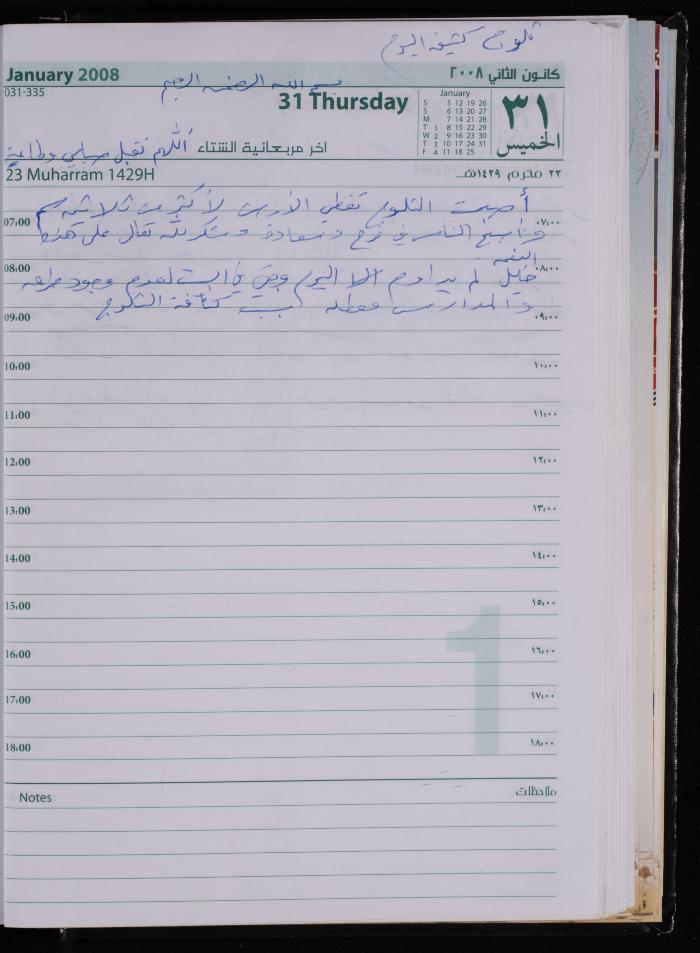 ثلوج كثيفة اليوم
January 2008
كانون الثاني ٢٠٠٨
031-335
بسم الله الرحمن الرحيم
31 Thursday
January
S 5 12 19 26
S 6 13 20 27
M 7 14 21 28
T 1 8 15 22 29
W 2 9 16 23 30
T 3 10 17 24 31
F 4 11 18 25
٣١
الخميس
آخر مربعانية الشتاء
اللهم تقبل صيامي وطاعتي
23 Muharram 1429H
٢٣ محرم ١٤٢٩هـ
أصبحت الثلوج تغطي الأرض لأكثر من ثلاثين سم
07:00 ٠٧:٠٠
وأصبح الناس في فرح وسعادة وشكر لله تعالى على هذه
النعمة
08:00 ٠٨:٠٠
خليل لم يداوم اليوم وبقي في البيت لعدم وجود
والمدارس معطلة بسبب كثافة الثلوج
09:00 ٠٩:٠٠
10:00 ١٠:٠٠
11:00 ١١:٠٠
12:00 ١٢:٠٠
13:00 ١٣:٠٠
14:00 ١٤:٠٠
15:00 ١٥:٠٠
1
16:00 ١٦:٠٠
17:00 ١٧:٠٠
18:00 ١٨:٠٠
Notes ملاحظات